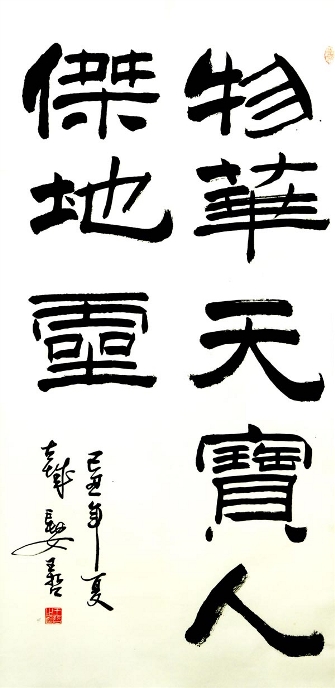 物華天寶人
傑地靈
己丑年夏